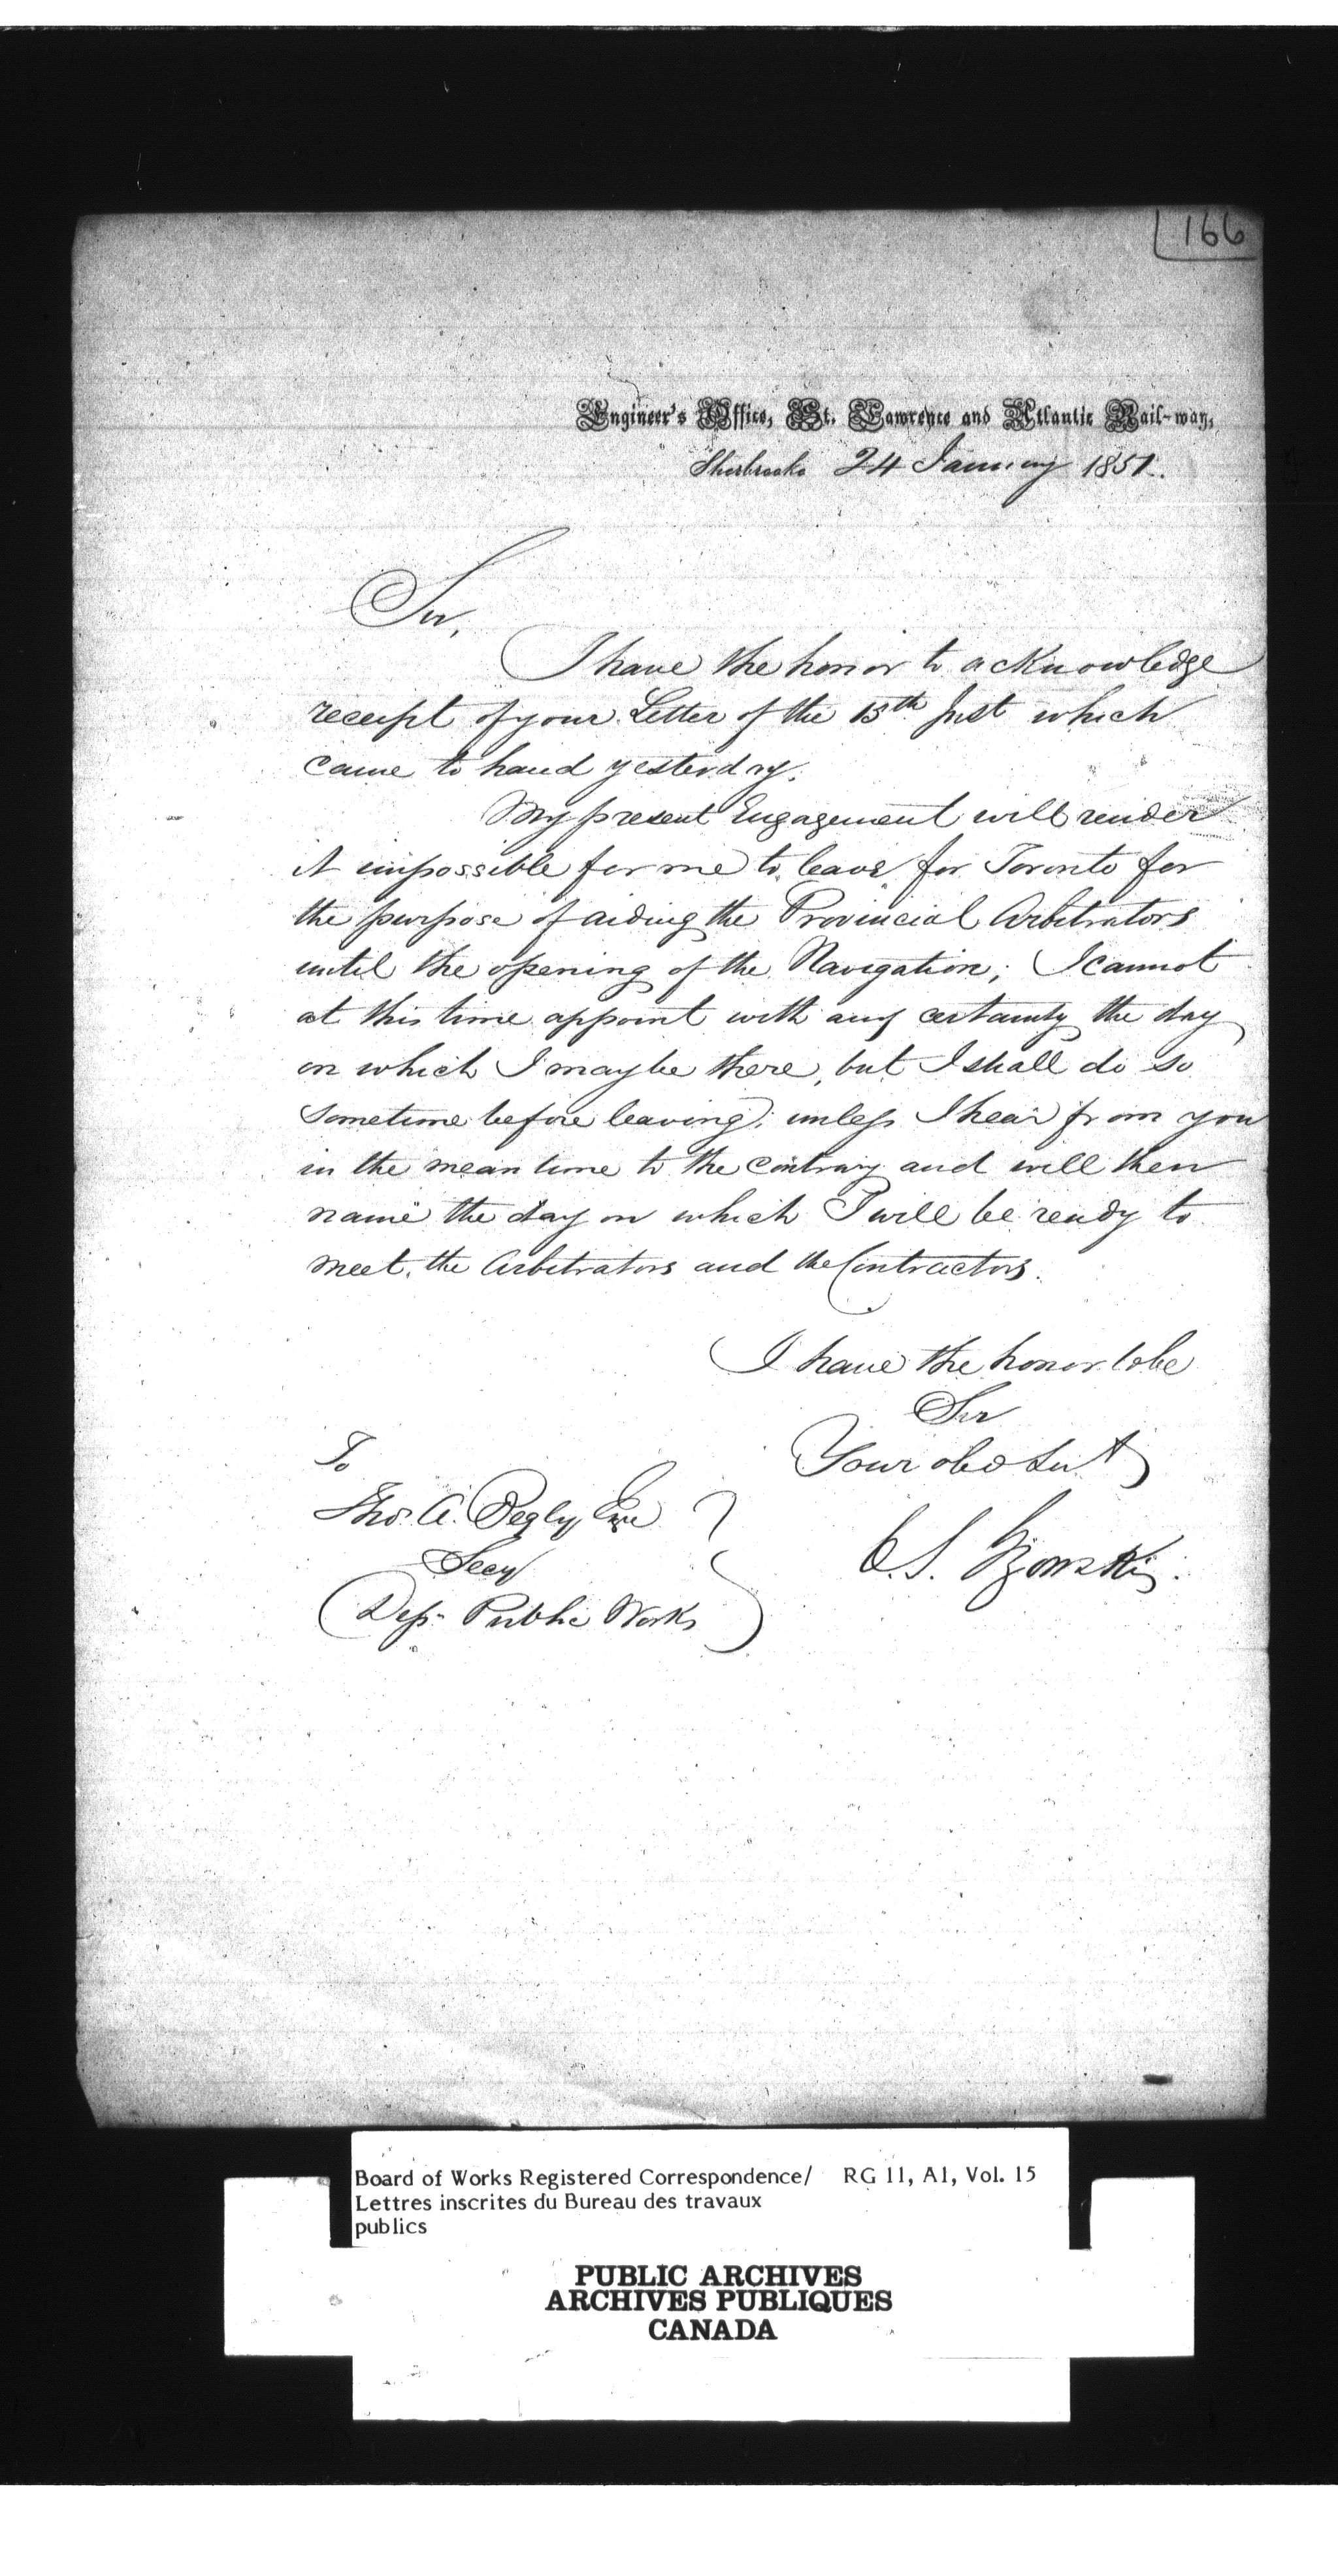 166
Engineer's Office, St. Lawrence and Atlantic Rail-way,
Sherbrooke 24 January 1851.
Sir,
I have the honor to acknowledge
receipt of your Letter of the 15th Inst which
came to hand yesterday.
My present Engagement will render
it impossible for me to leave for Toronto for
the purpose of aiding the Provincial Arbitrators
until the opening of the Navigation; I cannot
at this time appoint with any certainty the day
on which I may be there, but I shall do so
sometime before leaving; unless I hear from you
in the mean time to the contrary and will then
name the day on which I will be ready to
meet the Arbitrators and the Contractors.
I have the honor to be
Sir
Your obd Svt
C. S. Gzowski.
To
Thos. A. Begly Esqre
Secy
Dept Public Works
Board of Works Registered Correspondence/ RG 11, A1, Vol. 15
Lettres inscrites du Bureau des travaux
publics
PUBLIC ARCHIVES
ARCHIVES PUBLIQUES
CANADA